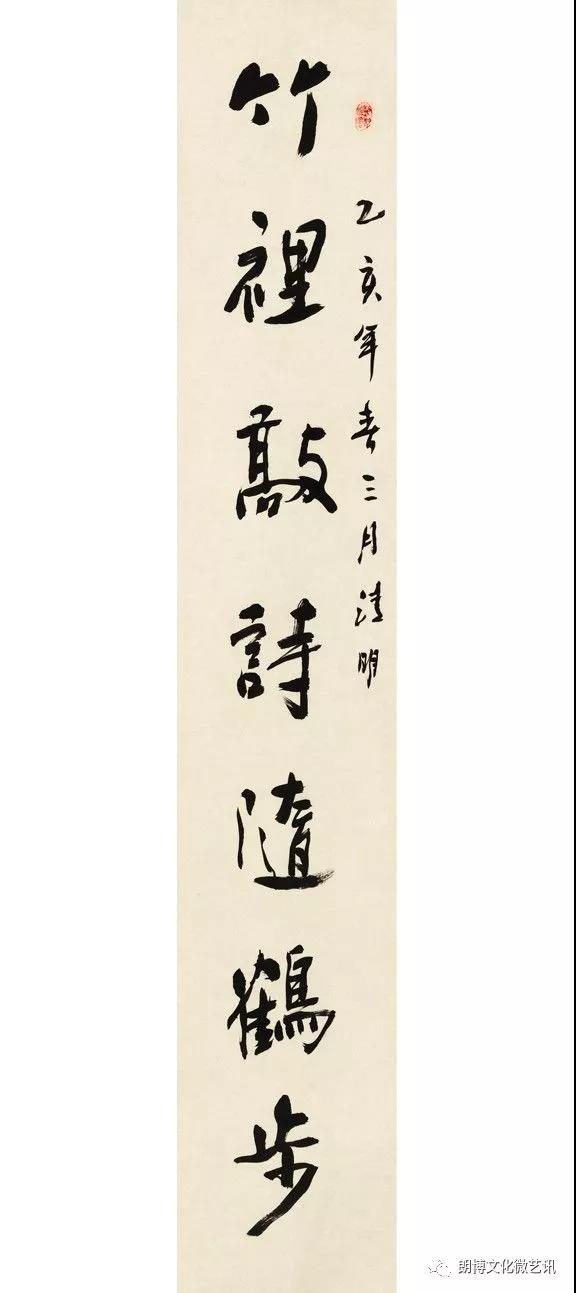 乙亥年春三月清明
竹裡敲詩隨鶴步
朗博文化微艺讯